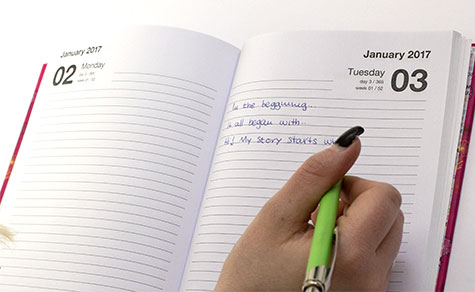 January 2017
02 Monday
day 2 / 365
week 01 / 52
January 2017
Tuesday 03
day 3 / 365
week 01 / 52
In the beggining...
all began with...
My story starts w